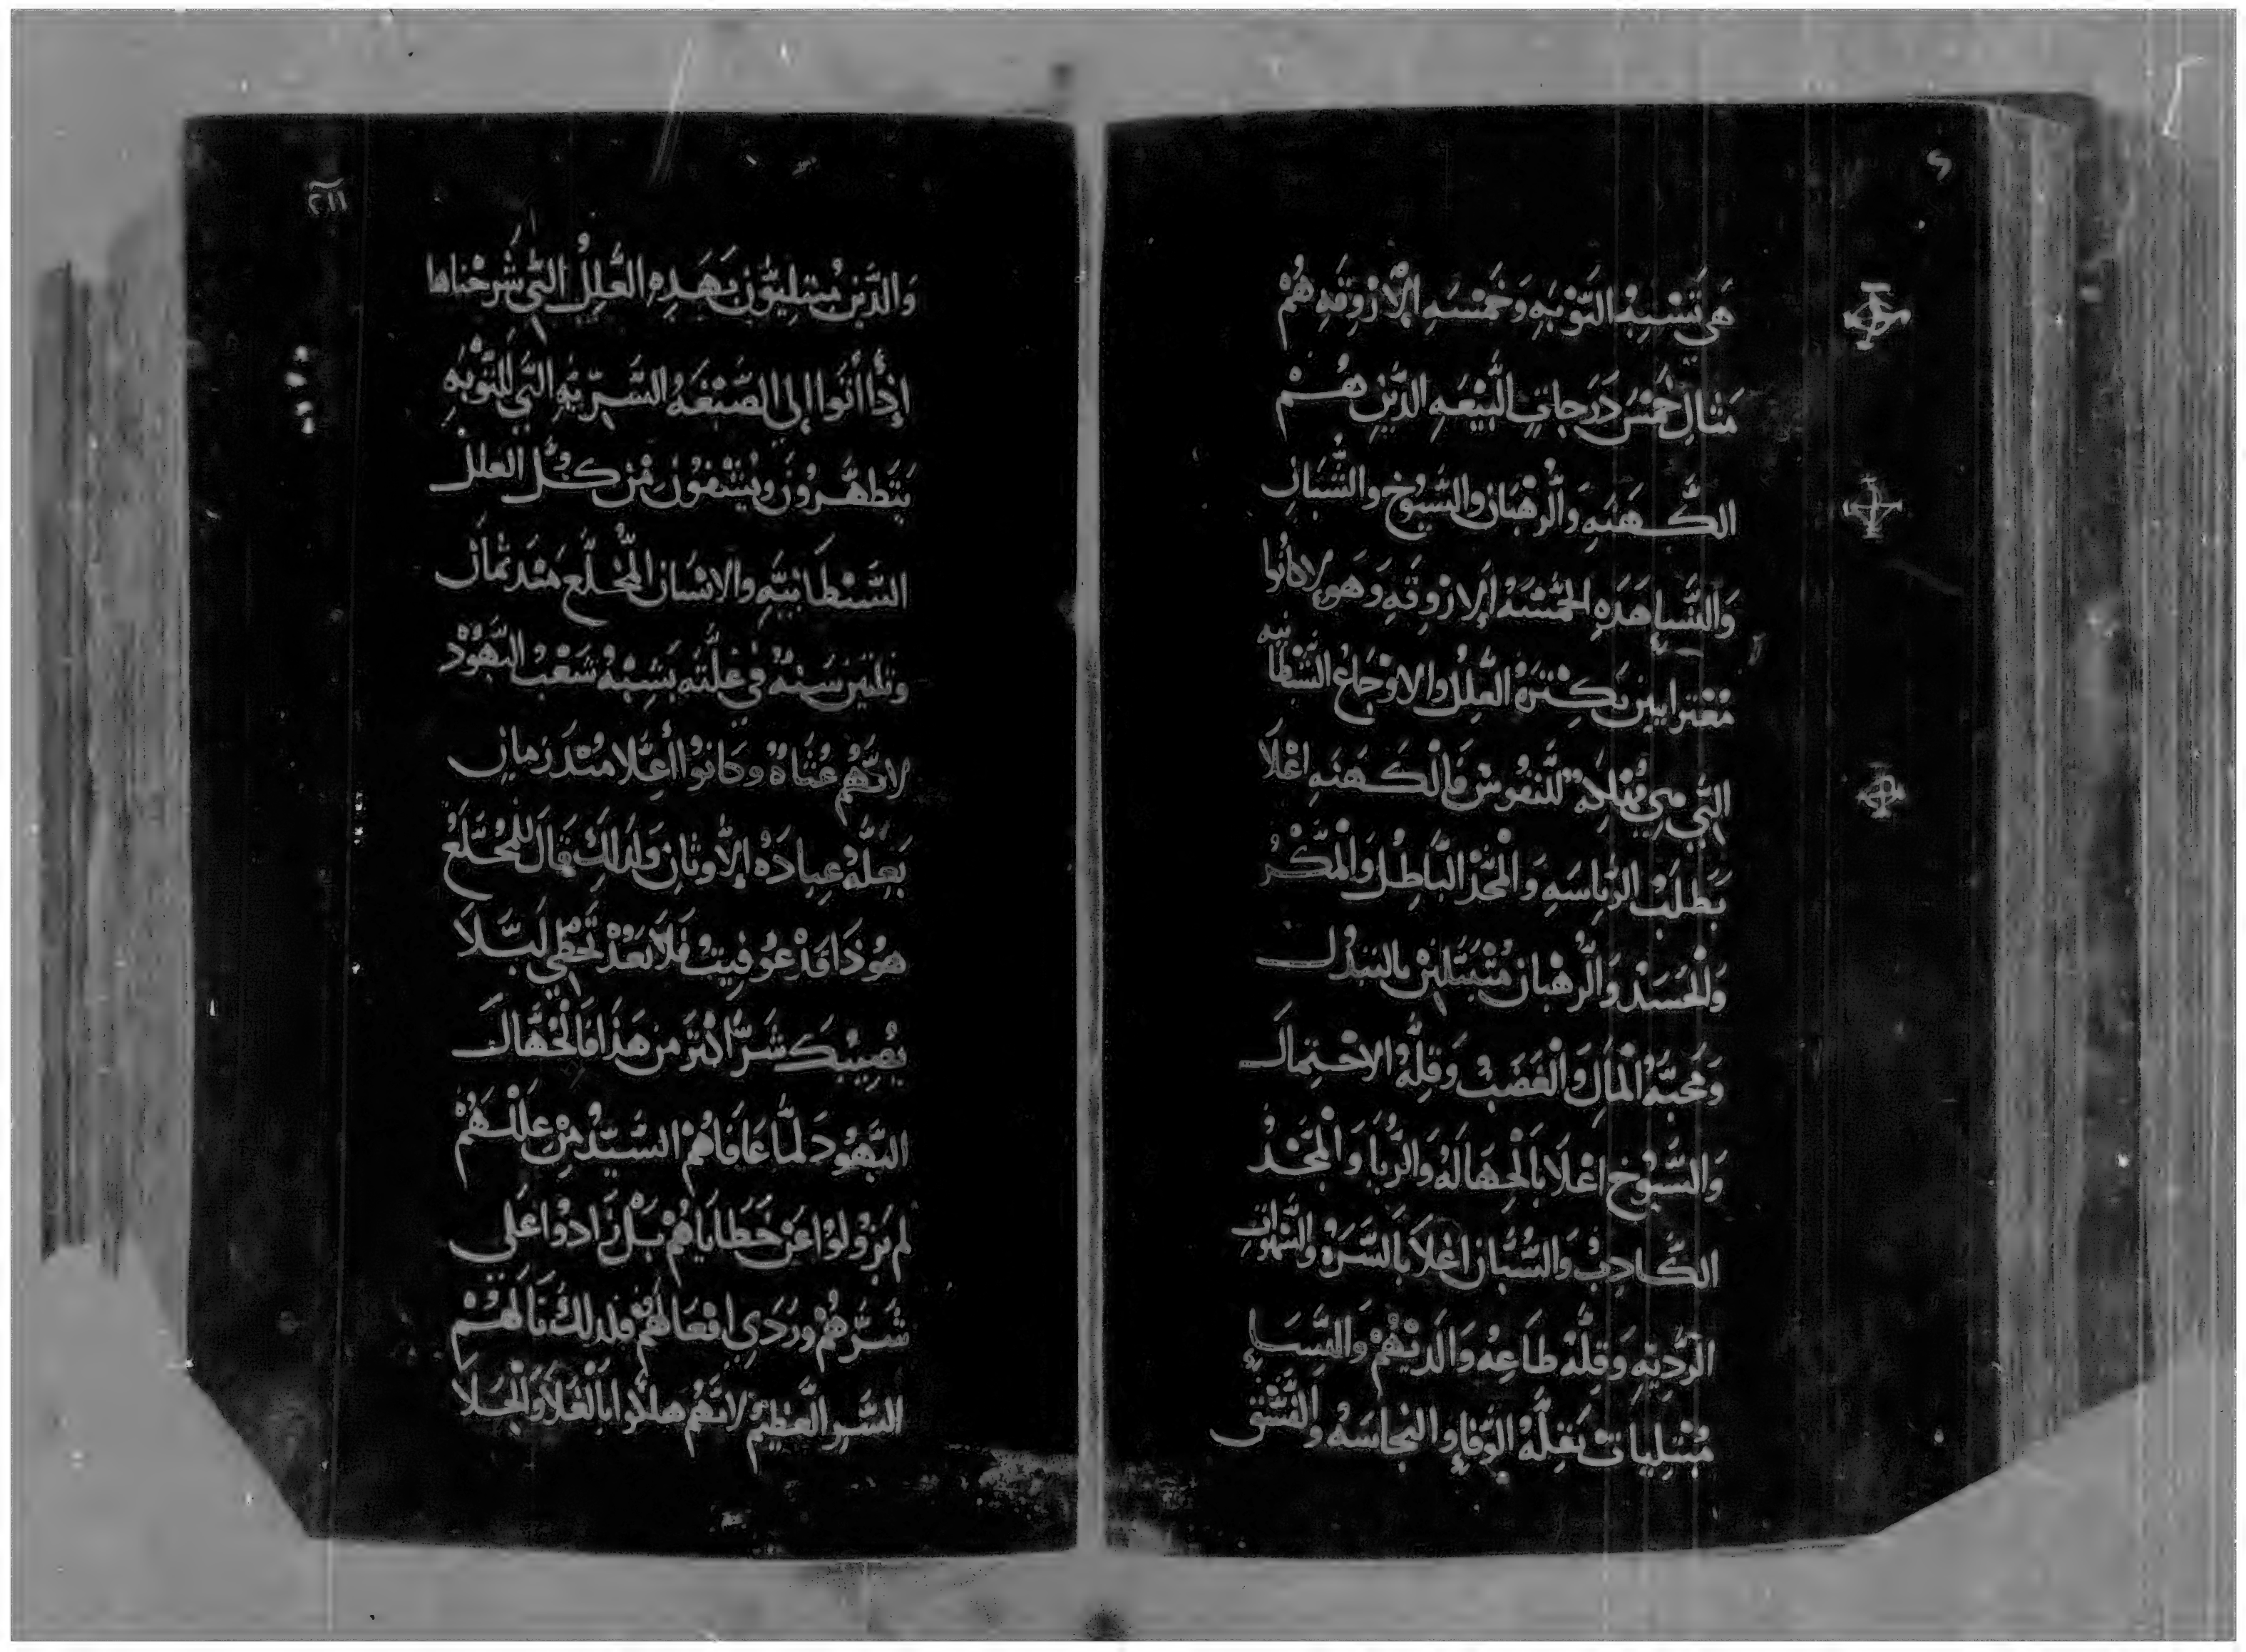 هى تشبه التوبه وخمسه الاروقه هم
مثال خمس درجات البيعه الدين هم
الكهنه والرهبان والشيوخ والشبان
والنسا هده الخمسه الاروقه وهولا كانوا
معترايين بكثرة العلل والاوجاع الشيطانيه
التي هي مهلكة للنفوس فالكهنه اعلا
بطلب الرياسه والمجد الباطل والمكر
والحسد والرهبان متبتلين بالتبدل
ومحبة المال والغضب وقلة الاحتمال
والشيوخ اعلا بالجهاله والربا والمجد
الكادب والشبان اعلا بالشره والشهوات
الرديه وقلة طاعه والديهم والنسا
مبتليات بقلة الوفا والنجاسه والفسق
والدين مبتليون بهده العلل التي شرحناها
إذا أتوا إلى الصبغه السريه التي للتوبه
يتطهرون ويشفون من كل العلل
الشيطانيه والانسان المخلع مند تمان
وتلتين سنه في علته يشبه شعب اليهود
لانهم عتاة وكانوا أعلا مند زمان
بعلة عبادة الأوتان ولدلك قال للمخلع
هوذا قد عوفيت فلا تعد تخطي ليلا
يصيبك شرا اكتر من هذا فالجهال
اليهود لما عافاهم السيد من عللهم
لم يزولوا عن خطاياهم بل زادوا على
شرهم وردي افعالهم فلدلك نالهم
الشر العظيم لانهم هلكوا بالغلا والجلا